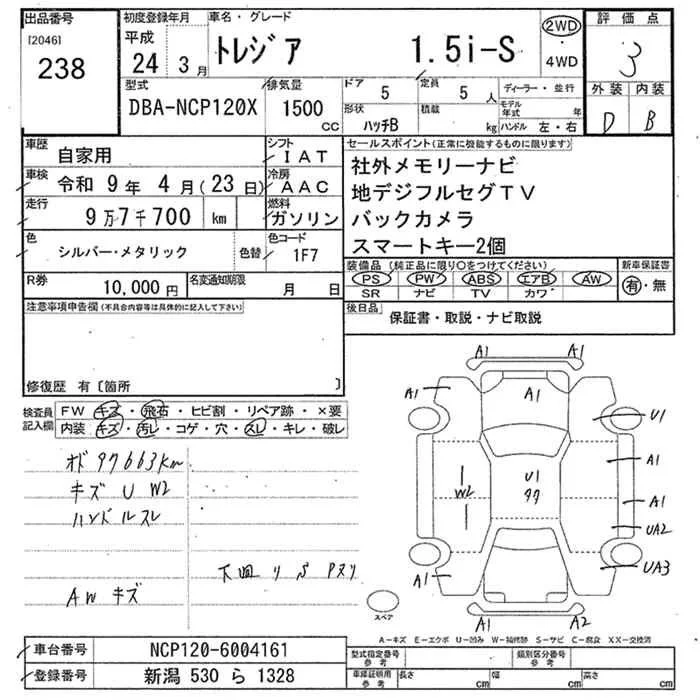 出品番号 初度登録年月 車名・グレード 評価点
[2046] 238 平成 24 3月 トレジア 1.5i-S 2WD ・ 4WD 3
型式 排気量 ドア 定員 ディーラー・並行 外装 内装
DBA-NCP120X 1500 CC 5 5人 モデル年式 年 D B
形状 ハッチB 積載 kg ハンドル 左・右
車歴 自家用 シフト IAT セールスポイント(正常に機能するものに限ります)
車検 令和 9年 4月(23日) 冷房 AAC 社外メモリーナビ
地デジフルセグTV
走行 9万7千700 km 燃料 ガソリン バックカメラ
スマートキー2個
色 シルバー・メタリック 色替 色コード 1F7 装備品(純正品に限り○をつけてください) 新車保証書
PS PW ABS エアB AW 有・無
SR ナビ TV カワ
R券 10,000円 名変通知期限 月 日
後日品 保証書・取説・ナビ取説
注意事項申告欄(不具合内容等は具体的に記入して下さい)
修復歴 有〔箇所 〕
検査員記入欄 FW キズ・飛石・ヒビ割・リペア跡・×要
内装 キズ・汚レ・コゲ・穴・スレ・キレ・破レ
オド 97663km
キズ U W2
ハンドルスレ
下廻リ S Pヌリ
AW キズ
A1 A1
A1 A1 U1
A1
W2 U1 A1
UA2
A1 UA3
A1 A2
スペア
A-キズ E-エクボ U-凹み W-補修跡 S-サビ C-腐食 XX-交換済
車台番号 NCP120-6004161 型式指定番号 参考 類別区分番号 参考
登録番号 新潟 530 ら 1328 車庫証明用 参考 長さ cm 幅 cm 高さ cm